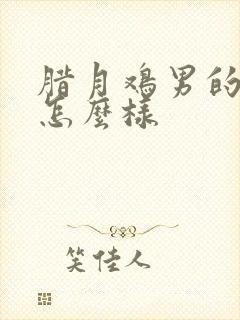 腊月鸡男的
怎麼样
笑佳人